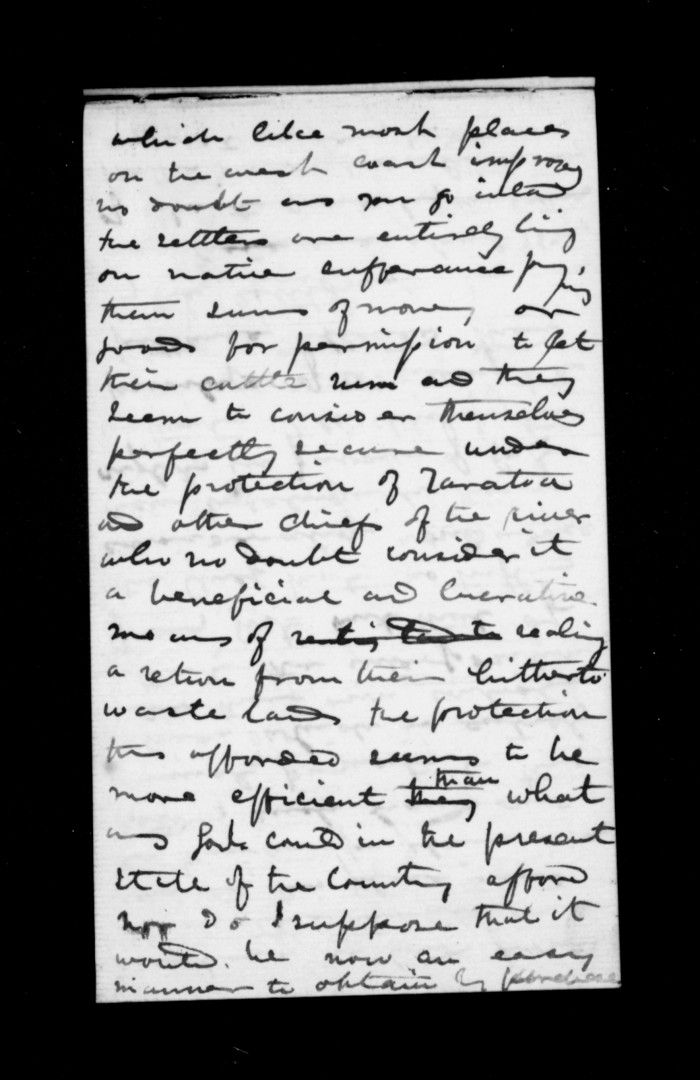 which like most places
on the west coast improves
no doubt as you go inland
the settlers are entirely living
on native sufferance paying
them sums of money or
goods for permission to let
their cattle run and they
seem to consider themselves
perfectly secure under
the protection of
and other chiefs of the river
who no doubt consider it
a beneficial and lucrative
means of renting land to realing
a return from their hitherto
waste lands the protection
this afforded seems to be
more efficient they than what
any Govt could in the present
state of the Country afford
nor do I suppose that it
would be now an easy
manner to obtain by purchase